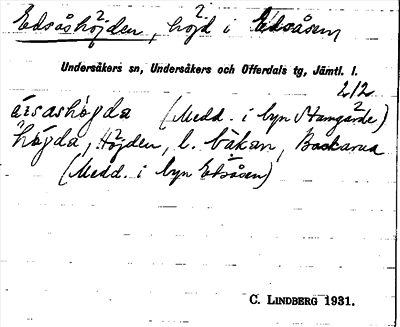 Edsåshöjden, höjd i Edsåsen
Undersåkers sn, Undersåkers och Offerdals tg, Jämtl. l.
212
åsashögda (Medd. i byn Stamgärde)
högda, Höjden, l. bäkan, Backarna
(Medd. i byn Edsåsen)
C. LINDBERG 1931.